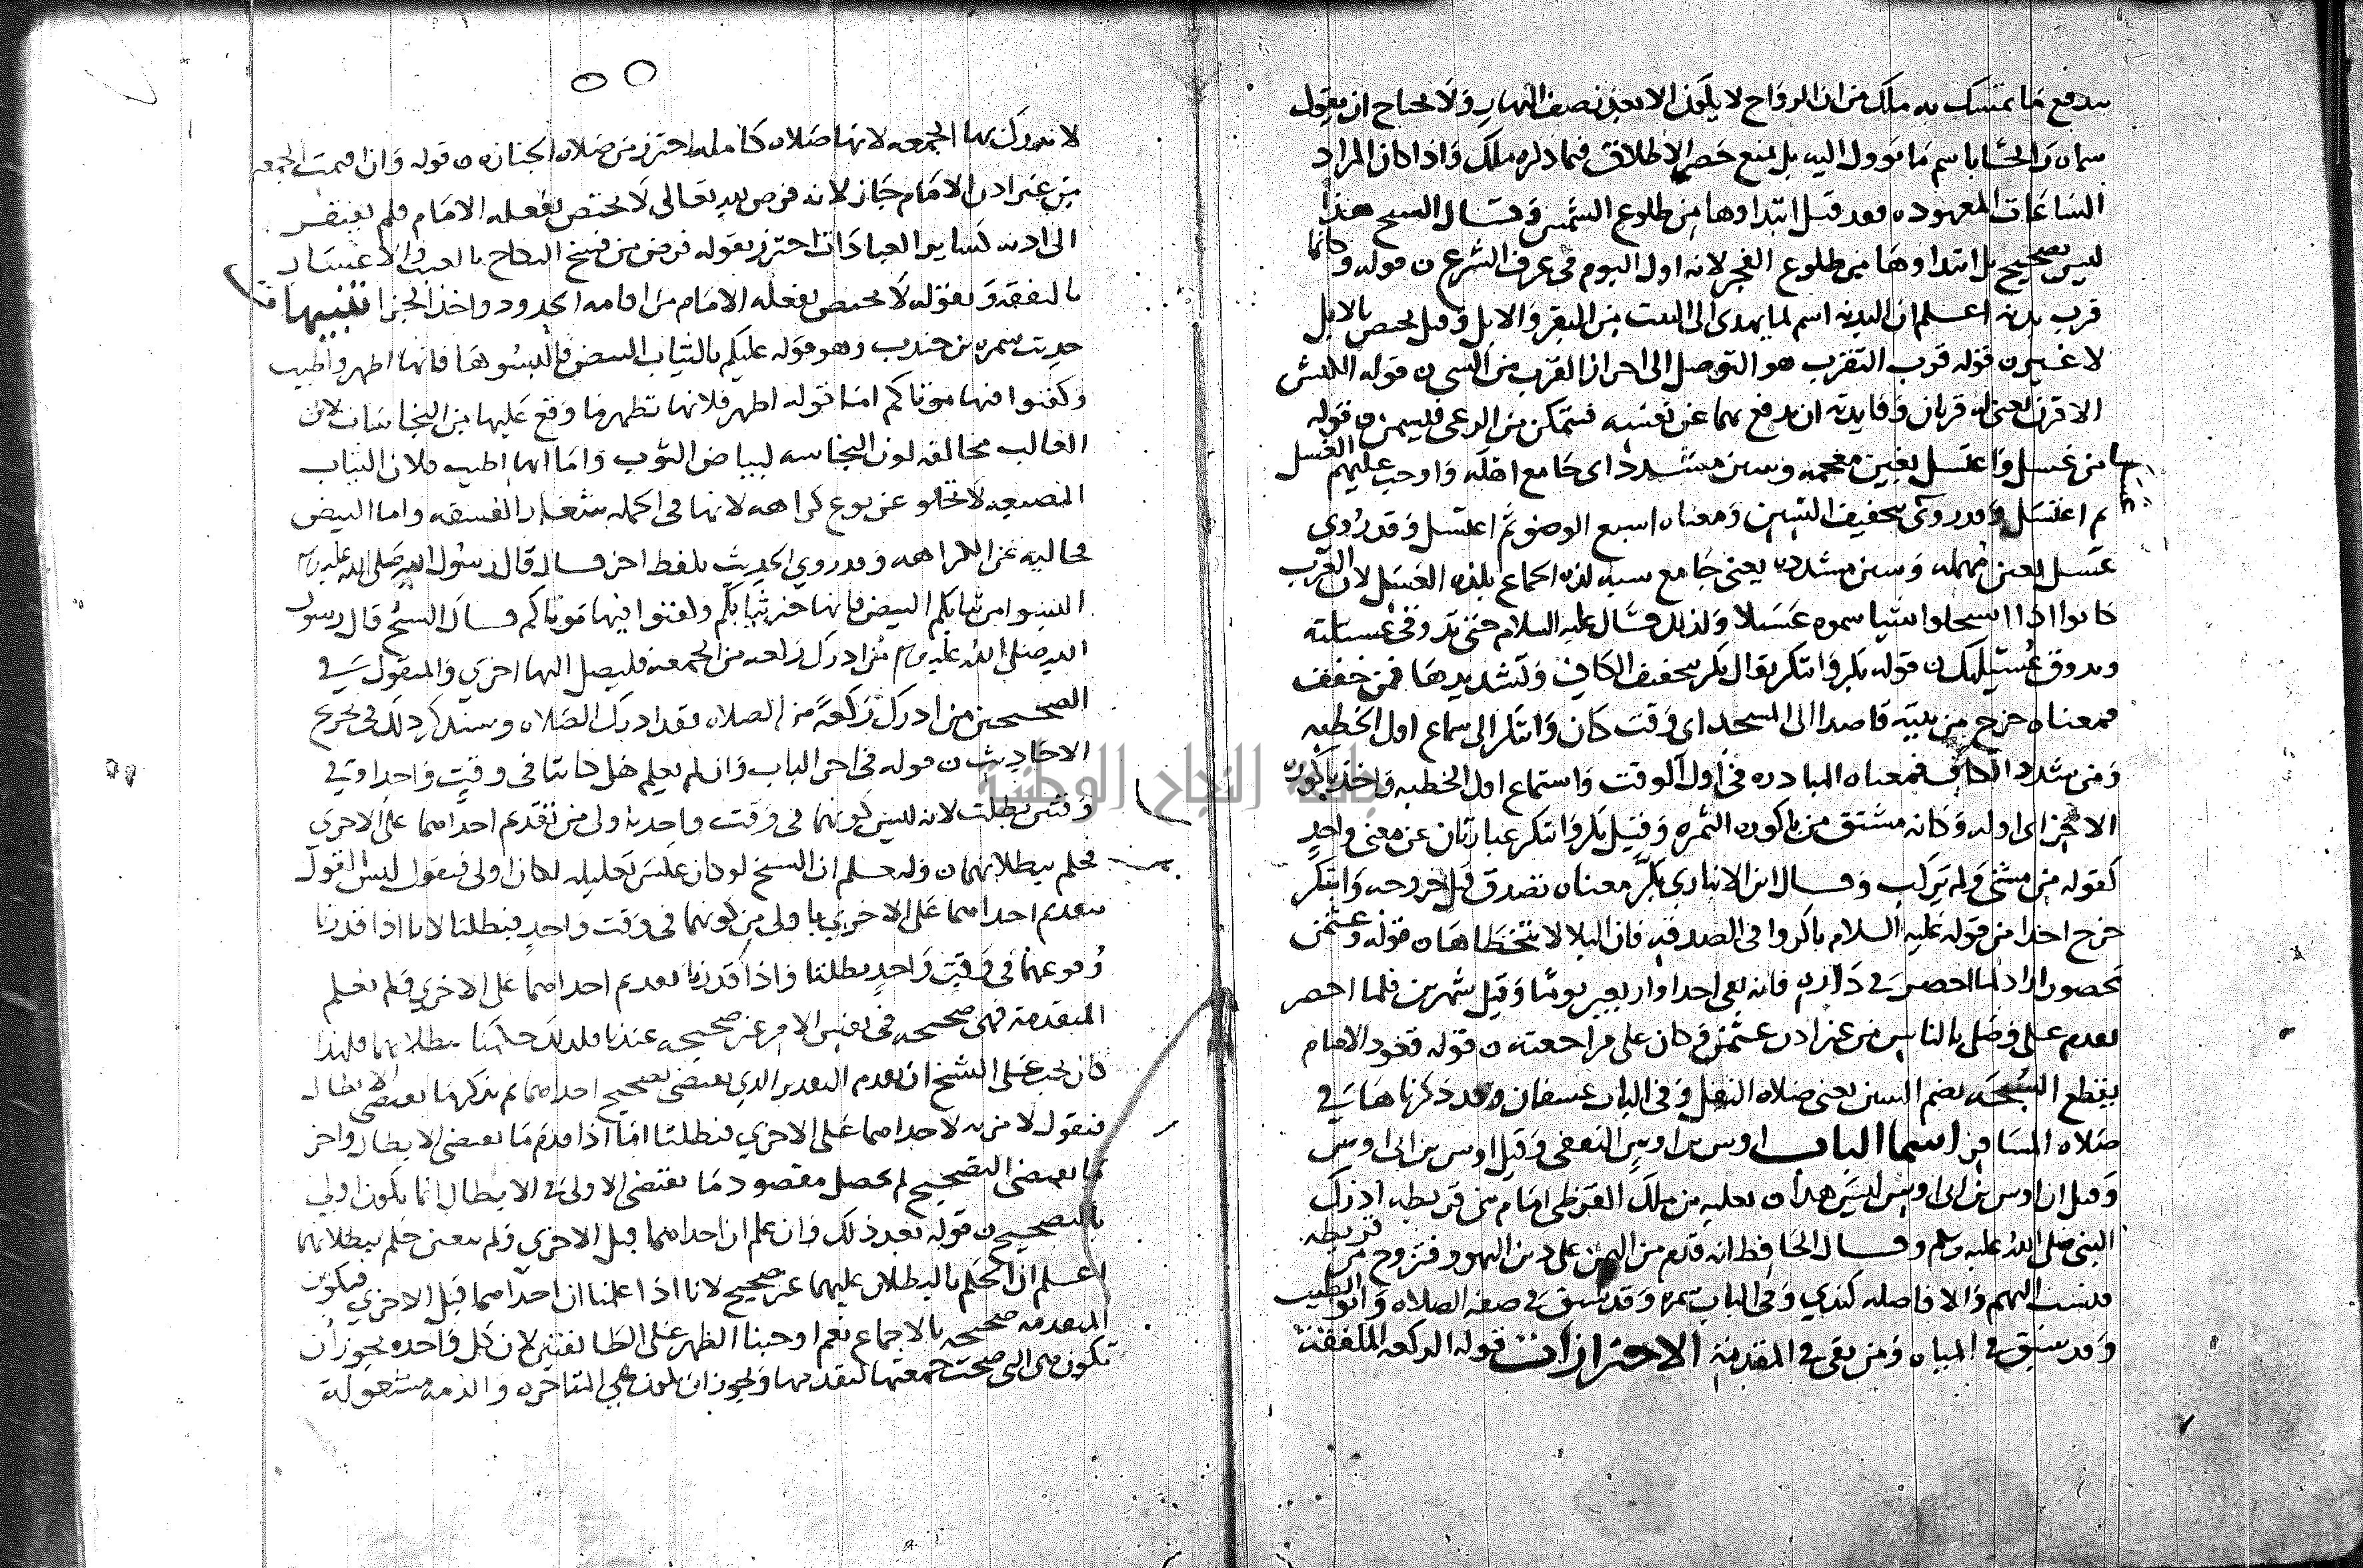 يندفع ما تمسك به ملك من ان الرواح لا يكون الا بعد نصف النهار ولا يحتاج ان يقول
سماه رايحا باسم ما يوول اليه بل يمنع الاطلاق فيما ذكره ملك واذا كان المراد
الساعات المعهوده فعد قبل ابتداوها من طلوع الشمس وقال الشيخ هذا
ليس بصحيح بل ابتداوها من طلوع الفجر لانه اول اليوم في عرف الشرع ن قوله وكانما
قرب بدنه اعلم ان البدنه اسم لما يهدى الى البيت من البقر والابل وقيل يختص بالابل
لا غير ن قوله قرب التقرب هو التوصل الى احراز القرب من الشي ن قوله الكبش
الاقرن يعنى له قرنان وفايدته ان يدفع بهما عن نفسه فيتمكن من الرعى فيسمن ن قوله
من غسل واغتسل بغين معجمه وسين مشدد اى جامع اهله واوجب عليهم الغسل
ثم اغتسل وقد روى بتخفيف السين ومعناه اسبع الوضو ثم اغتسل وقد روي
عسل بعين مهمله وسين مشدده يعنى جامع شبه لذه الجماع بلذه العسل لان العرب
كانوا اذا استحلوا شيا سموه عسلا ولذلك قال عليه السلام حتى تذوقى عسيلته
ويذوق عسيلتك ن قوله بكر وابتكر يقال بكر بتخفيف الكاف وتشديدها فمن خفف
فمعناه خرج من بيته قاصدا الى المسجد اى وقت كان وابتكر الى سماع اول الخطبه
ومن شدد الكاف فمعناه المبادره في اول الوقت واستماع اول الخطبه واخذ باكوره
الاجر اى اوله وكانه مشتق من باكوره الثمره وقيل بكر وابتكر عبارتان عن معنى واحد
كقوله من مشى ولم يركب وقال ابن الانباري بكر معناه تصدق قبل خروجه وابتكر
خرج اخذا من قوله عليه السلام باكروا فى الصدقه فان البلا لا يتخطاها ن قوله وعثمن
محصور اراد لما احصر في داره فانه بقى احدا واربعين يوما وقيل شهرين فلما احصر
تقدم على وصلى بالناس من غير اذن عثمن وكان على مراجعته ن قوله قعود الامام
يقطع السبحه بضم السين يعنى صلاه النفل وفى الباب عسفان وقد ذكرناها في
صلاه المسافر اسما الباب اوس بن اوس الثقفى وقيل اوس بن ابى اوس
وقيل ان اوس بن ابى اوس ليس هذا ن ثعلبه بن ملك القرظى امام بنى قريظه ادرك
النبى صلى الله عليه وسلم وقال الحافظ انه قدم من اليمن على دين اليهود فتزوج من قريظه
فنسب اليهم والا فاصله كندي وفى الباب سمره وقد سبق في صفه الصلاه وابو الطيب
وقد سبق في المياه ومن بقى في المقدمه الاحترازات قوله الركعه الملفقه
لا يدرك بها الجمعه لانها صلاه كامله احترز من صلاه الجنازه ن قوله وان اقيمت الجمعه
من غير اذن الامام جاز لانه فرض لله تعالى لا يختص بفعله الامام فلم يفتقر
الى اذنه كساير العبادات احترز بقوله فرض من فسخ النكاح بالعيب والاعسار
بالنفقه وبقوله لا يختص بفعله الامام من اقامه الحدود واخذ الجزا تنبيهات
حديث سمره بن جندب وهو قوله عليكم بالثياب البيض فالبسوها فانها اطهر واطيب
وكفنوا فيها موتاكم اما قوله اطهر فلانها تظهر ما وقع عليها من النجاسات لان
الغالب مخالفه لون النجاسه لبياض الثوب واما انها اطيب فلان الثياب
المصبغه لا تخلو عن نوع كراهه لانها فى الجمله شعار الفسقه واما البيض
فخاليه عن الكراهه وقد روي الحديث بلفظ اخر قال قال رسول الله صلى الله عليه وسلم
البسوا من ثيابكم البيض فانها خير ثيابكم وكفنوا فيها موتاكم قال الشيخ قال رسول
الله صلى الله عليه وسلم من ادرك ركعه من الجمعه فليصل اليها اخرى والمنقول في
الصحيحين من ادرك ركعة من الصلاه فقد ادرك الصلاه وسنذكر ذلك فى تخريج
الاحاديث ن قوله فى اخر الباب وان لم يعلم هل كانتا فى وقت واحد او في
وقتين بطلت لانه ليس كونهما فى وقت واحد باولى من تقدم احداهما على الاخري
فحكم ببطلانهما ن وله علم ان الشيخ لو كان عكس تعليله لكان اولى فيقول ليس القول
بتقدم احداهما على الاخري باولى من كونهما فى وقت واحد فبطلتا لانا اذا قدرنا
وقوعهما فى وقت واحد بطلتا واذا قدرنا تقدم احداهما على الاخري ولم نعلم
المتقدمه فهى صحيحه فى نفس الامر غير صحيحه عندنا فلذلك حكمنا ببطلانهما فلهذا
كان يجب على الشيخ ان يقدم التقدير الذي يقتضى تصحيح احداهما ثم يذكر ما يقتضى الابطال
فنقول لا مزيه لاحداهما على الاخري فبطلتا اما اذا قدم ما يقتضى الابطال واخر
ما يقتضى التصحيح لم يحصل مقصود ما يقتضى الاولى في الابطال انما يكون اولى
بالتصحيح ن قوله بعد ذلك وان علم ان احداهما قبل الاخري ولم تتعين حكم ببطلانهما
اعلم ان الحكم بالبطلان عليهما غير صحيح لانا اذا علمنا ان احداهما قبل الاخري فيكون
المتقدمه صحيحه بالاجماع نعم اوجبنا الظهر على الطايفتين لان كل واحده يجوز ان
تكون هى التى صحت جمعتها لتقدمها ويجوز ان تكون هى المتاخره والذمه مشغوله